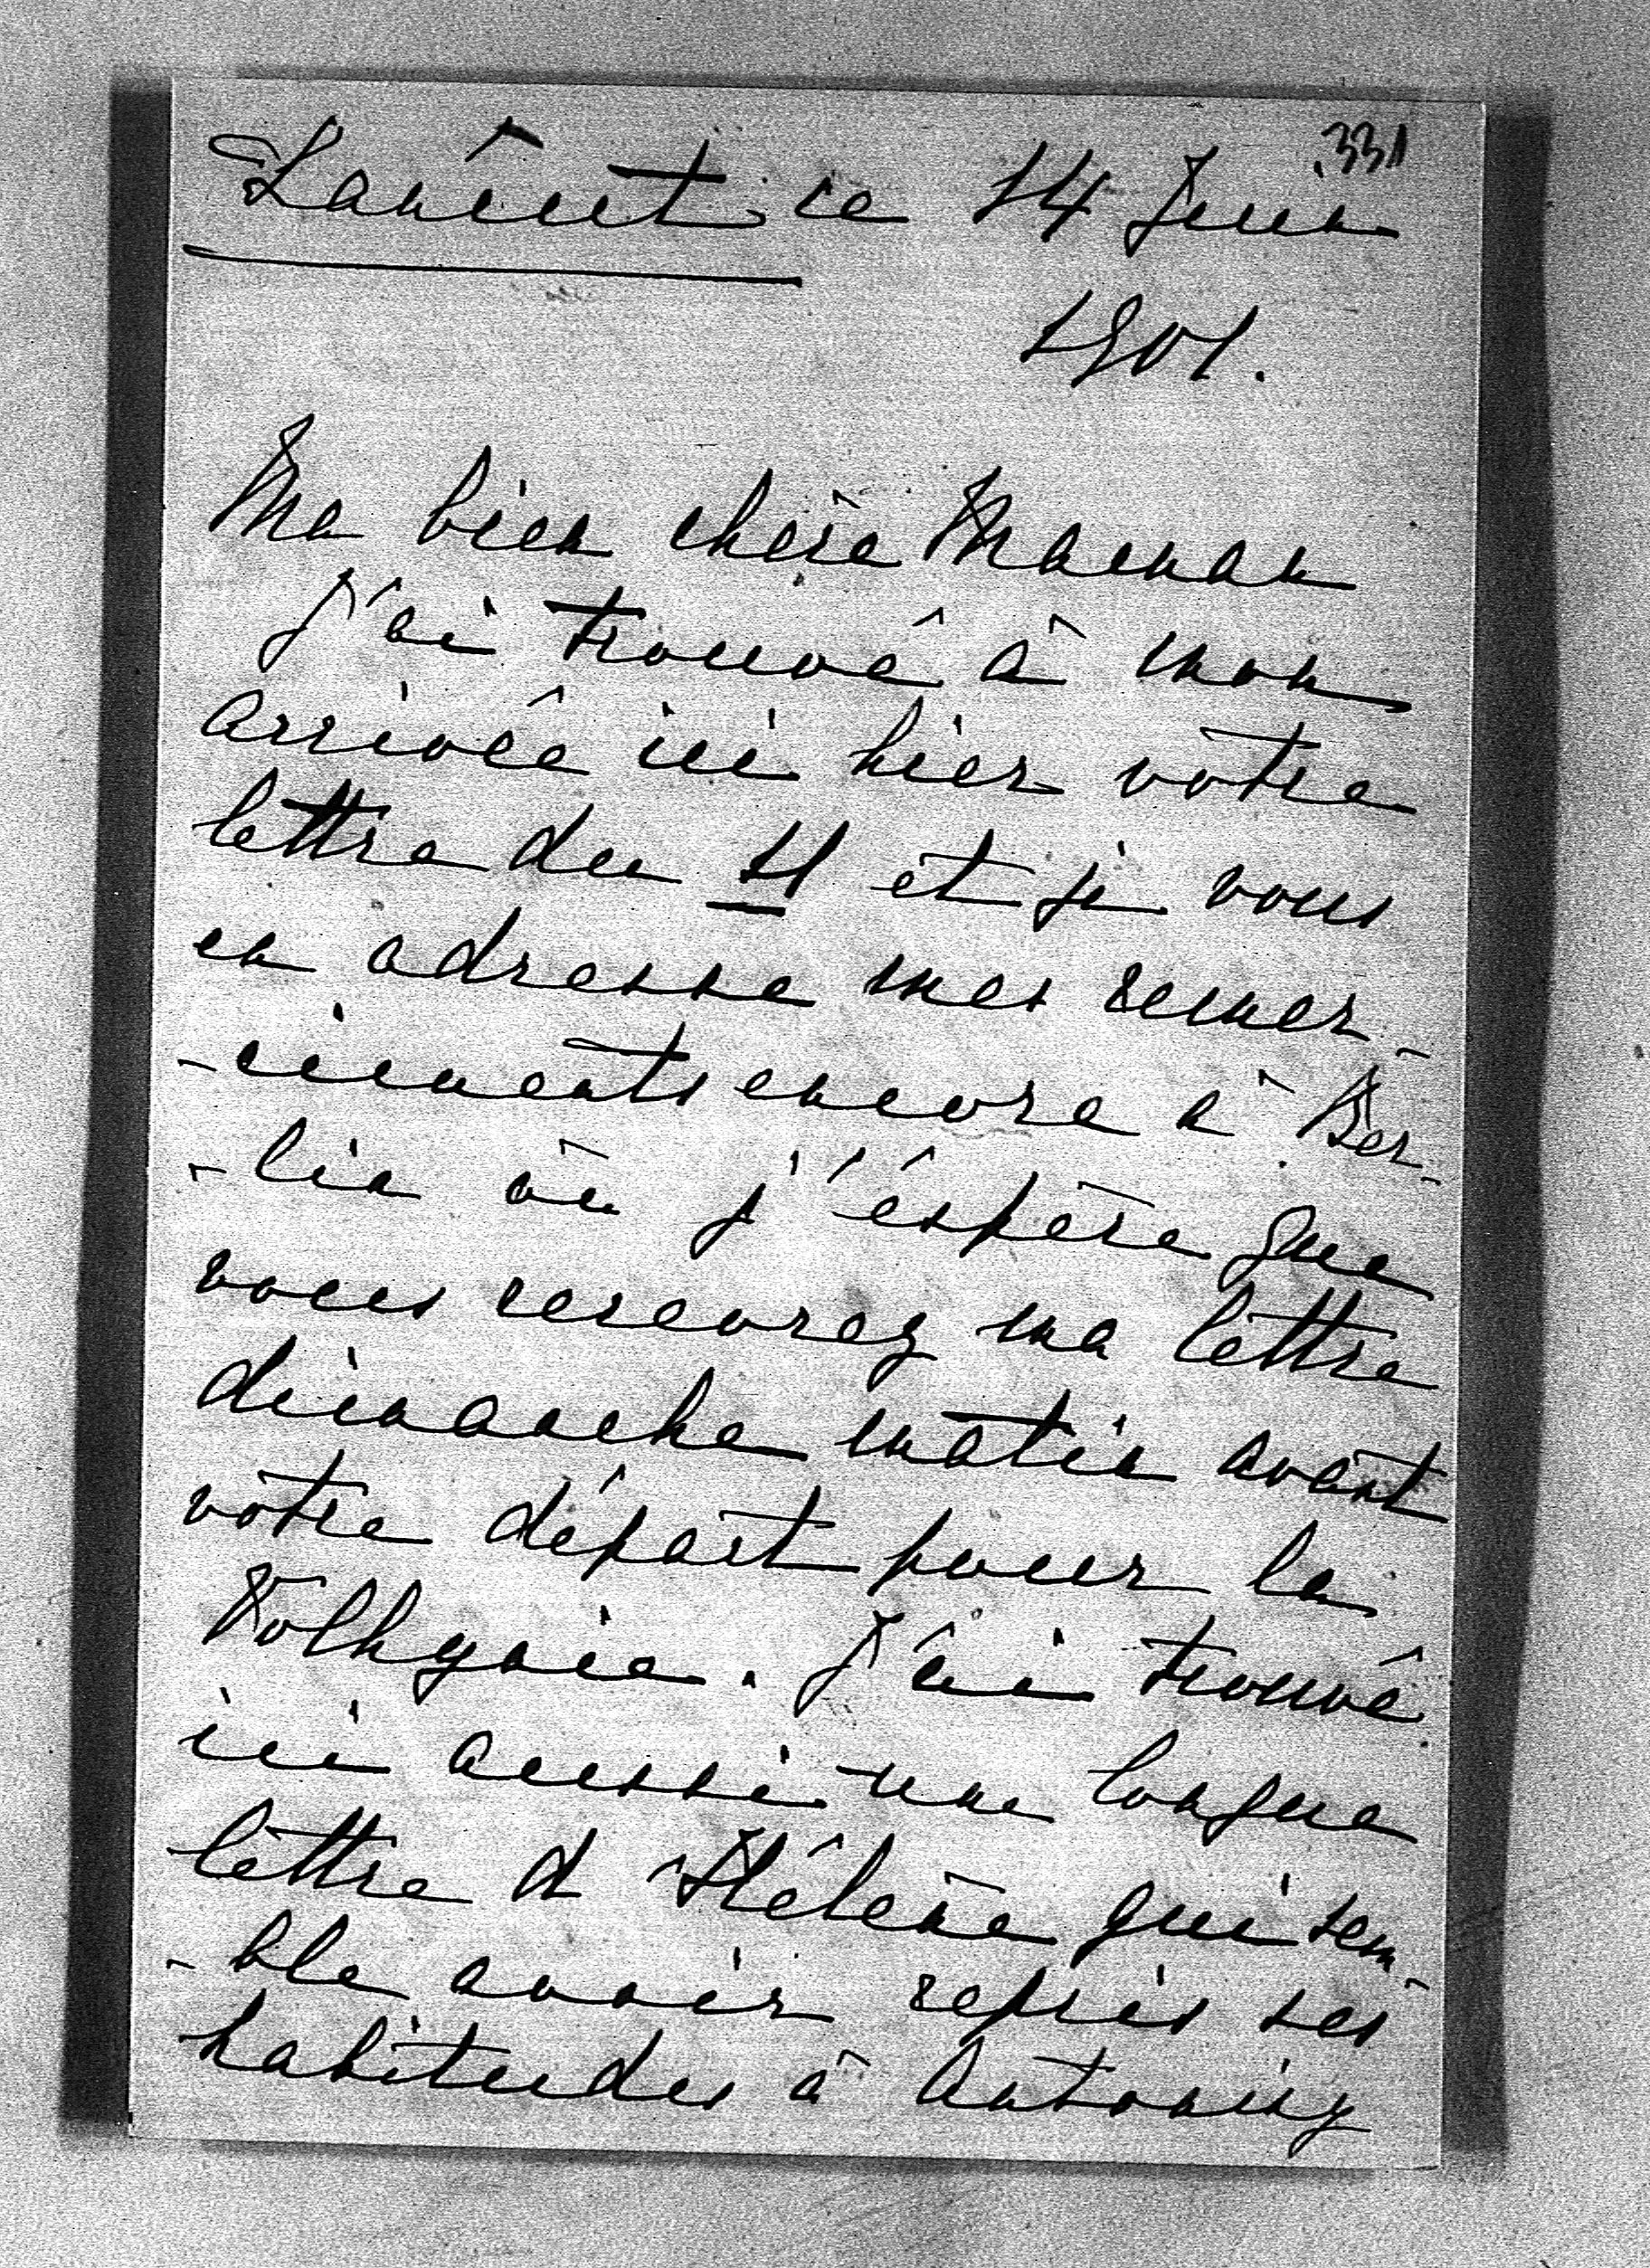 331
Łańcut ce 14 Juin
1901.
Ma bien chère Maman
J'ai trouvé à mon
arrivée ici hier votre
lettre du 11 et je vous
en adresse mes remer-
-ciments encore à Ber-
-lin où j'éspère que
vous recevrez ma lettre
dimanche matin avant
votre départ pour la
Volhynie. J'ai trouvé
ici aussi une longue
lettre d'Hélène qui sem-
-ble avoir repris ses
habitudes à Antoniny